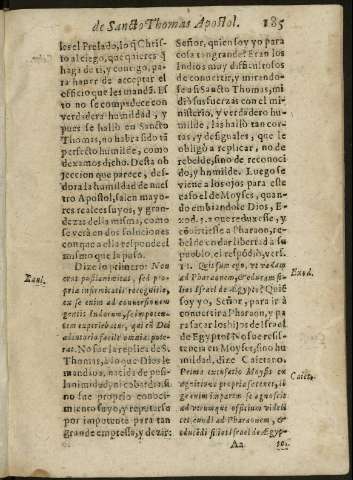 de Sancto Thomas Apostol. 185
les el Prelado, lo q̃ Chris-
to al ciego, que quieres q̃
haga de ti, y contigo, pa-
ra haber de acceptar el
officio que les manda. Es
to no se compadece con
verdadera humildad, y
pues se hallò en Sancto
Thomas, no ha ya sido tã
perfecto humilde, como
dexamos dicho. Desta ob
jeccion que parece, des-
dora la humildad de nues
tro Apostol, salen mayo-
res realces suyos, y gran-
dezas de la misma, como
se verà en dos soluciones
con que a ella responde el
mismo que la puso.
Dize lo primero: Non
erat pusilanimitas, sed pro-
pria infirmitatis recognitio,
ex se enim ad conversionem
gentis Indorum, se impoten-
tem experiebatur, qui in Dei
adiutorio facile omnia pote-
rat. No fue la replica de S.
Thomas, a lo que Dios le
mandava, nacida de pusi-
lanimidad, ni cobardia, si
no fue proprio conoci-
miento suyo, y reputarse
por impotente para tan
grande empressa, y dezir:
Señor, quien soy yo para
cosa tan grande? Eran los
Indios muy dificultosos
de convertir, y mirando-
se a si Sancto Thomas, mi
diò sus fuerzas con el mi-
nisterio, y verdadero hu-
milde, las hallò tan cor-
tas, y desiguales, que le
obligò a replicar, no de
rebelde, sino de reconoci
do, y humilde. Luego se
viene a los ojos para este
caso el de Moyses, quan-
do embiandole Dios, E-
xod. 3. a que reduxesse, y
convirtiesse a Pharaon, re-
belde en dar libertad a su
pueblo, el respõdiò, vers.
11. Quis sum ego, ut vadam
ad Pharaonem, & educam fi-
lios Israel de Ægypto? Quiẽ
soy yo, Señor, para ir à
convertir a Pharaon, y pa
ra sacar los hijos de Israel
de Egypto? No fue resis-
tencia en Moyses, sino hu
mildad, dize Caietano.
Prima excusatio Moysis ex
cognitione propria fecerat, i-
gnarum imparem se agnoscit
ad utrumque officium videli
cet eundi ad Pharaonem, &
educendi filios Israel de Ægyp-
Aa
to.
Exod.
Caiet.